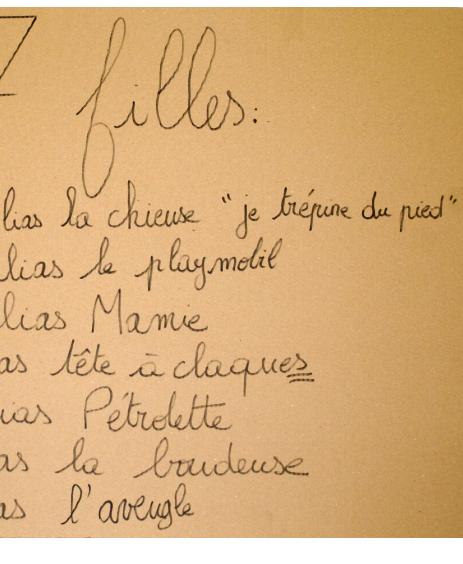 7 filles:
lias la chieuse "je trépine du pied"
lias le playmobil
lias Mamie
as tête à claques
ias Pétrolette
as la boudeuse
as l'aveugle